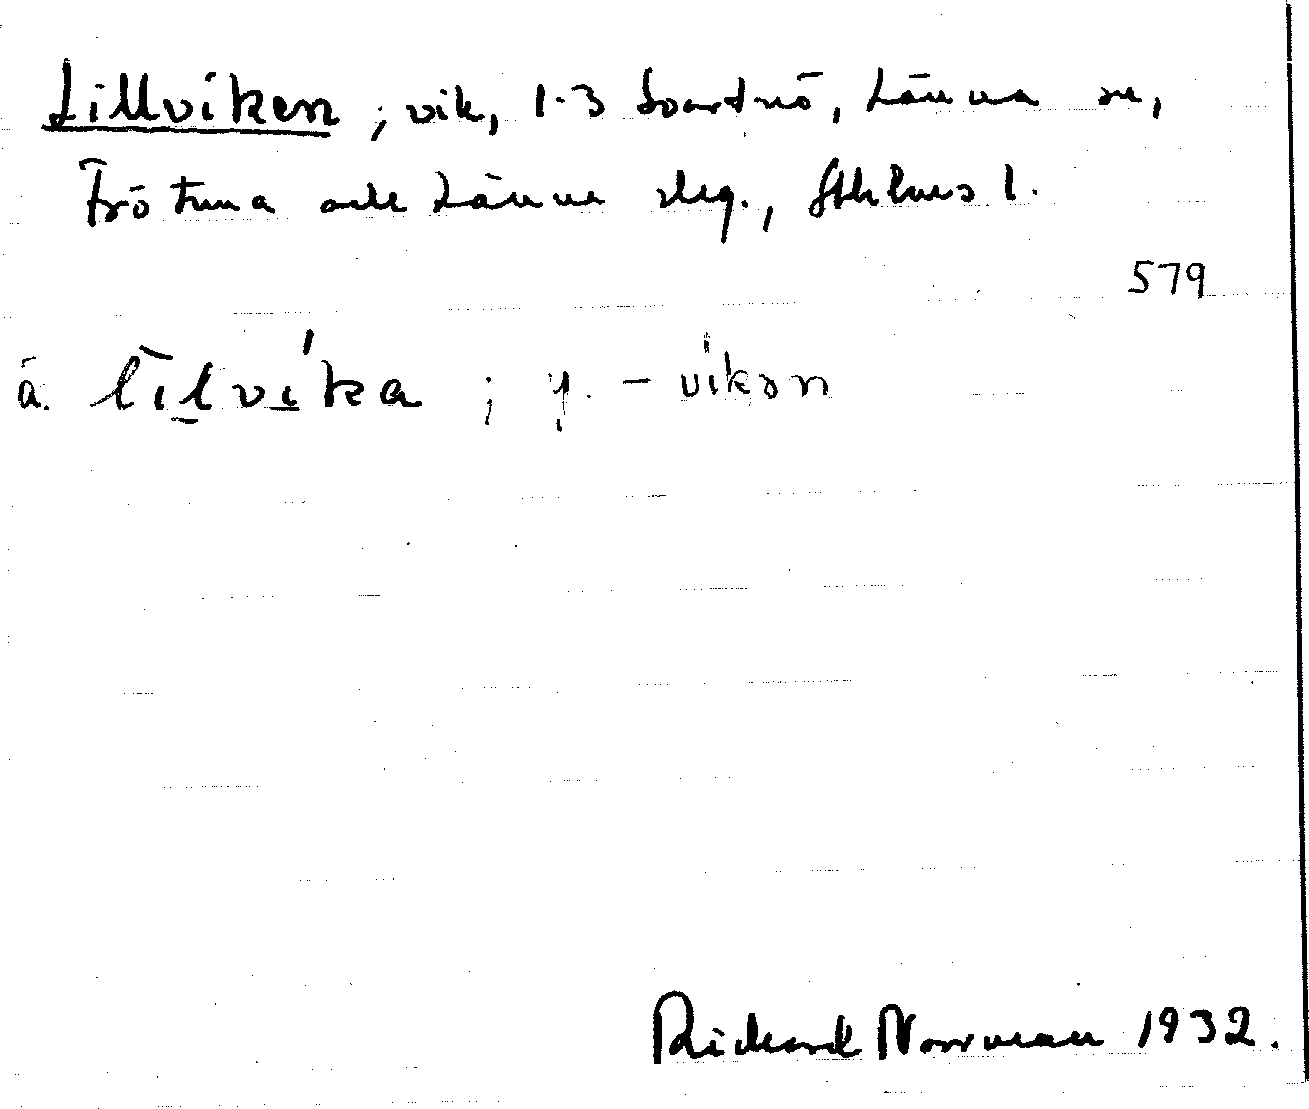 Lillviken ; vik, 1-3 Svartnö, Länna sn,
Frötuna och Länna slg., Sthlms l.
579
ä. lilvika ; y. - vikən
Rickard Norrman 1932.